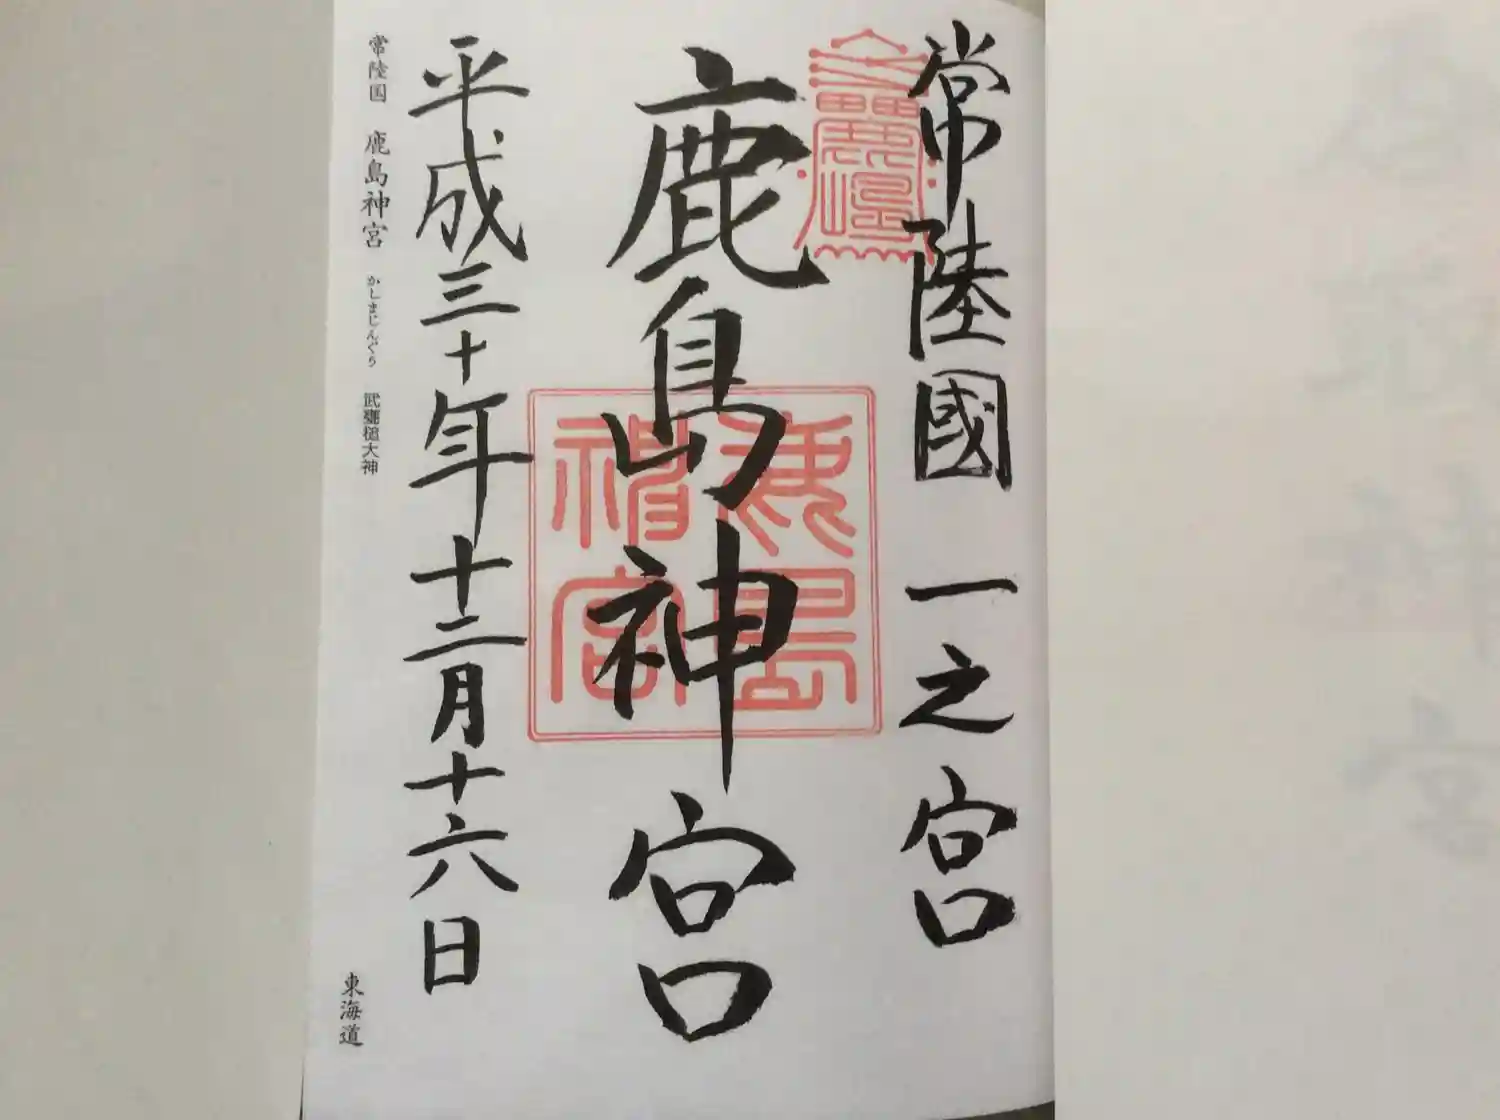 常陸國 一之宮
鹿島神宮
鹿島神宮
平成三十年十二月十六日
常陸国 鹿島神宮 かしまじんぐう 武甕槌大神
東海道